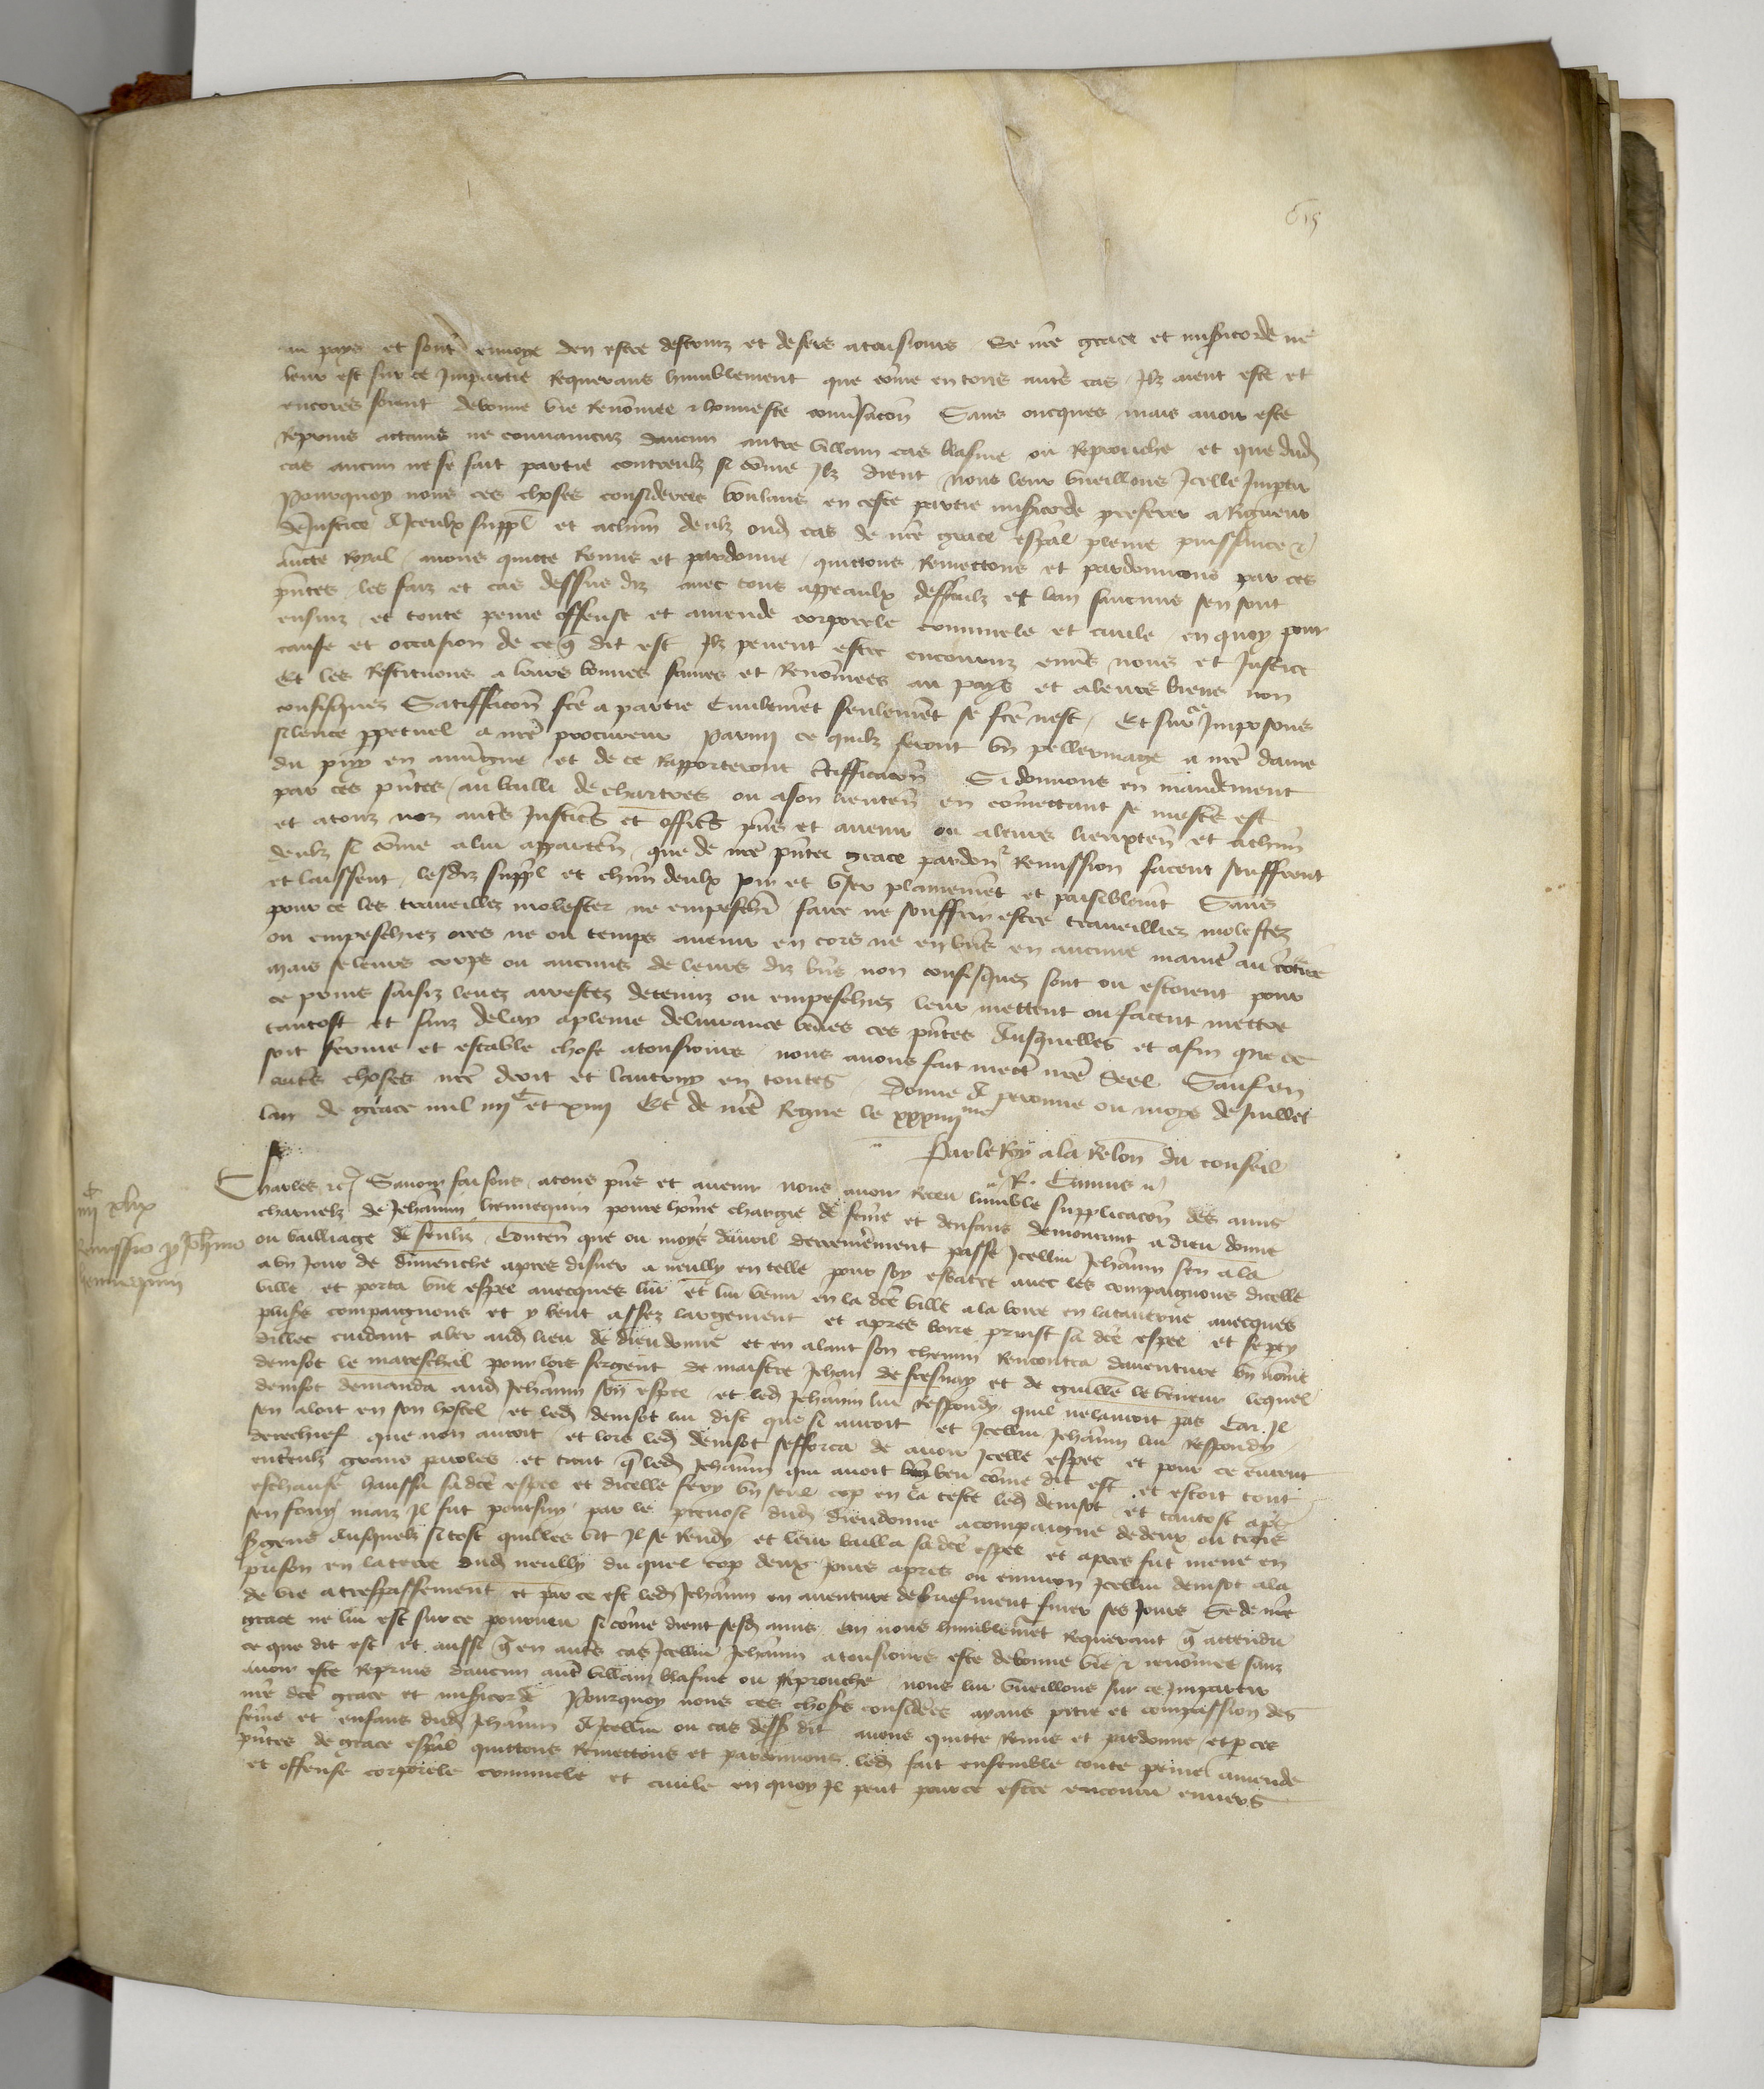 au pays et sont en voye den estre destruiz et desers a tousiours Se nrē grace et misicorde ne
leur est sur ce Impartie Requerans humblement que cōme en tous autēs cas Ilz aient este et
encores soient de bonne vie Renōmee & honneste conūsacōn Sans oncques mais auoir este
Reprins attains ne conuaincuz daucun autre villain cas blasme ou Reprouche et que dud
cas aucun ne se fait partie contreulz si cōme Ilz dient nous leur vueillons Icelle Imptir
Pourquoy nous ces choses considerees voulans en ceste partie misicorde preferer a Rigueur
de Justice A Iceulx suppl et achūn deulz oud cas de nrē grace espāl pleine puissance &
aucte Royal auons quitte Remis et pardonne quittons Remettons et pardonnons par ces
pntes les faiz et cas dessus diz auec tous appeaulx deffaulz et ban saucuns sen sont
ensuiz et toute peine offense et amende corporele criminele et ciuile en quoy pour
cause et occasion de ce q̄ dit est Ilz peuent estre encouruz enuēs nous et Justice
Et les Restituons a leurs bonnes fames et Renōmees au pays et a leurs biens non
confisquez Satiffacōn fcē a partie Ciuilemēt seulemēt se fcē nest Et sur ce Imposons
silence ppetuel a nrē procureur Parmy ce quilz feront vn pellerinage a nrē dame
du puy en auūgne et de ce Rapporteront c̄tifficacōn Si donnons en mandement
par ces pn̄tes au bailli de chartres ou a son lieuten en cōmettant se mestiē est
et a touz noz autēs Justicēs et officēs pn̄s et auenir ou a leurs lieuxten et a chūn
deulz si cōme a lui apparten que de nrē pn̄te grace pardon & Remission facent seuffrent
et laissent lesdiz suppl et chūn deulx joir et vser plainemēt et paisiblemt Sans
pour ce les traueillez molester ne empeschēr faire ne souffrir estre traueilliez molestez
ou empeschiez ores ne ou temps auenir en cors ne en biēs en aucune maniē au cōtrēe
Mais se leurs corps ou aucuns de leurs diz biēs non confisquez sont ou estoient pour
ce prins saisiz leuez arrestez detenuz ou empeschiez leur mettent ou facent mettre
tantost et sanz delay a pleine deliurance veues ces pn̄tes Ausquelles et afin que ce
soit ferme et estable chose a tousiours nous auons fait mettē nrē Seel Sauf en
autēs choses nrē droit et lautruy en toutes Donne A peronne ou moys de Juillet
lan de grace mil iiij c et xiiij Et de nrē Regne le xxxiiij me
Par le Roy a la Relōn du conseil
R. Camus
iiij c xlix
Remissio p Johanno
hennequin
Charles &c Sauoir faisons a tous pn̄s et auenir nous auoir Receu lumble supplicacōn des amis
charnelz de Jehannin hennequin poure hōme chargie de fēme et denfans demourant a dieu donne
ou bailliage de senliz Conten que ou moys dauril derreniērement passe Icellui Jehānin sen ala
a vn Jour de dimenche apres disner a neully en telle pour soy esbatre auec les compaignons dicelle
ville et porta vne espee auecques lui et lui venu en la dcē ville ala boire en la tauerne auecques
pluss compaignons et y beut assez largement et apres boire prinst sa dcē espee et se pty
dillec cuidant aler aud lieu de dieudonne et en alant son chemin Rencontra dauenture vn nōme
denisot le mareschal pour lors sergent de maistre Jehan de fresnay et de guillē le veneur lequel
denisot demanda aud Jehānin son espee et led Jehānin lui Respondy quil ne lauroit pas Car Il
sen aloit en son hostel et led denisot lui dist que si auroit et Icellui Jehānin lui Respondy
derechief que non auroit et lors led denisot sefforca de auoir Icelle espee et pour ce eurent
entreulz grans paroles et tant q̄ led Jehānin qui auoit beu cōme dit est et estoit tout
eschauffe haussa sa dcē espee et dicelle fery vn seul cop en la teste led denisot et tantost apēs
sen fouy mais Il fut poursuy par le preuost dud Dieudonne acompaigne de deux ou trois
sgens Ausquelz si tost quil les vit Il se Rendy et leur bailla sa dcē espee et apres fut mene en
prison en la terre dud neully du quel cop deux jours apres ou enuiron Icellui denisot ala
de vie a trespassement et par ce est led Jehānin en auenture de briefment finer ses Jours Se de nrē
grace ne lui est sur ce pourueu si cōme dient sesd amis en nous humblemēt Requerant q̄ attendu
ce que dit est et aussi q̄ en autēs cas Icellui Jehānin a tousiours este de bonne vie & renōmee sanz
auoir este Reprins daucun autē villain blasme ou Reprouche nous lui vueillons sur ce Impartir
nrē dcē grace et misicorde Pourquoy nous ces choses considēes ayans pitie et compassion des
fēme et enfans dud Jehānin A Icellui ou cas dess dit auons quitte Remis et pardonne et p ces
pn̄tes de grace espāl quittons Remettons et pardonnons led fait ensemble toute peine amende
et offense corporele criminele et ciuile en quoy Il peut pour ce estre encouru enuers